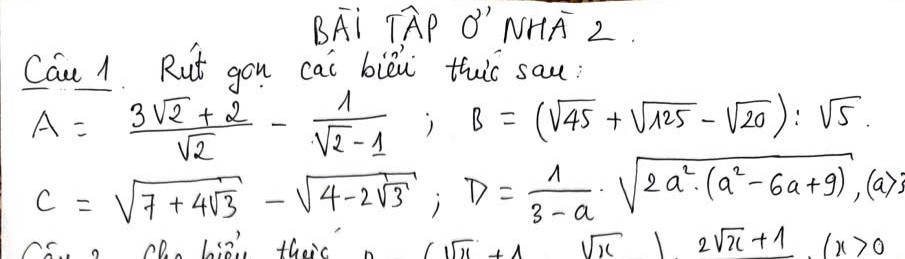 BÀI TẬP Ở NHÀ 2.
Câu 1. Rút gọn các biểu thức sau:
A = (3√2 + 2)/√2 - 1/(√2 - 1) ; B = (√45 + √125 - √20) : √5.
C = √(7 + 4√3) - √(4 - 2√3) ; D = 1/(3 - a) · √(2a² · (a² - 6a + 9)), (a>3
Câu 2. Cho biểu thức